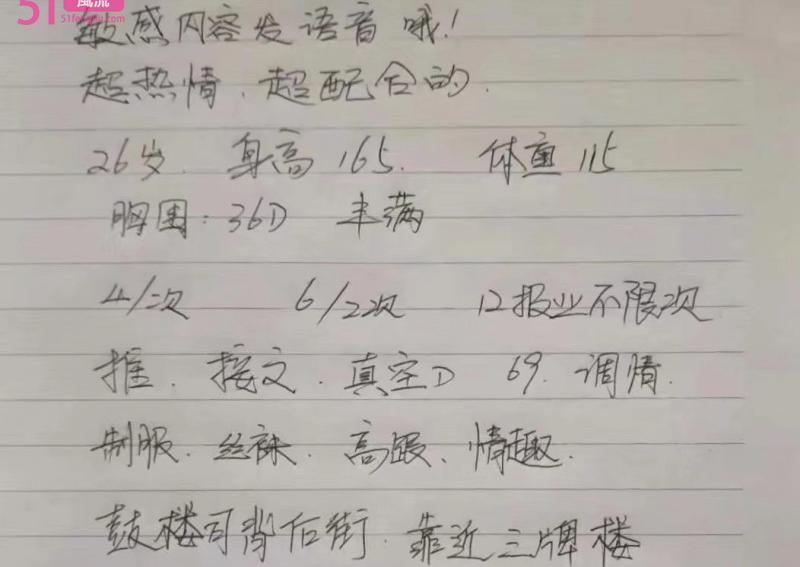 51風流
51fengliu.com
敏感内容发语音哦!
超热情.超配合的.
26岁. 身高165. 体重115
胸围:36D 丰满
4/次 6/2次 12报业不限次
推.接文.真空D 69.调情.
制服.丝袜.高跟、情趣.
鼓楼司背后街.靠近三牌楼